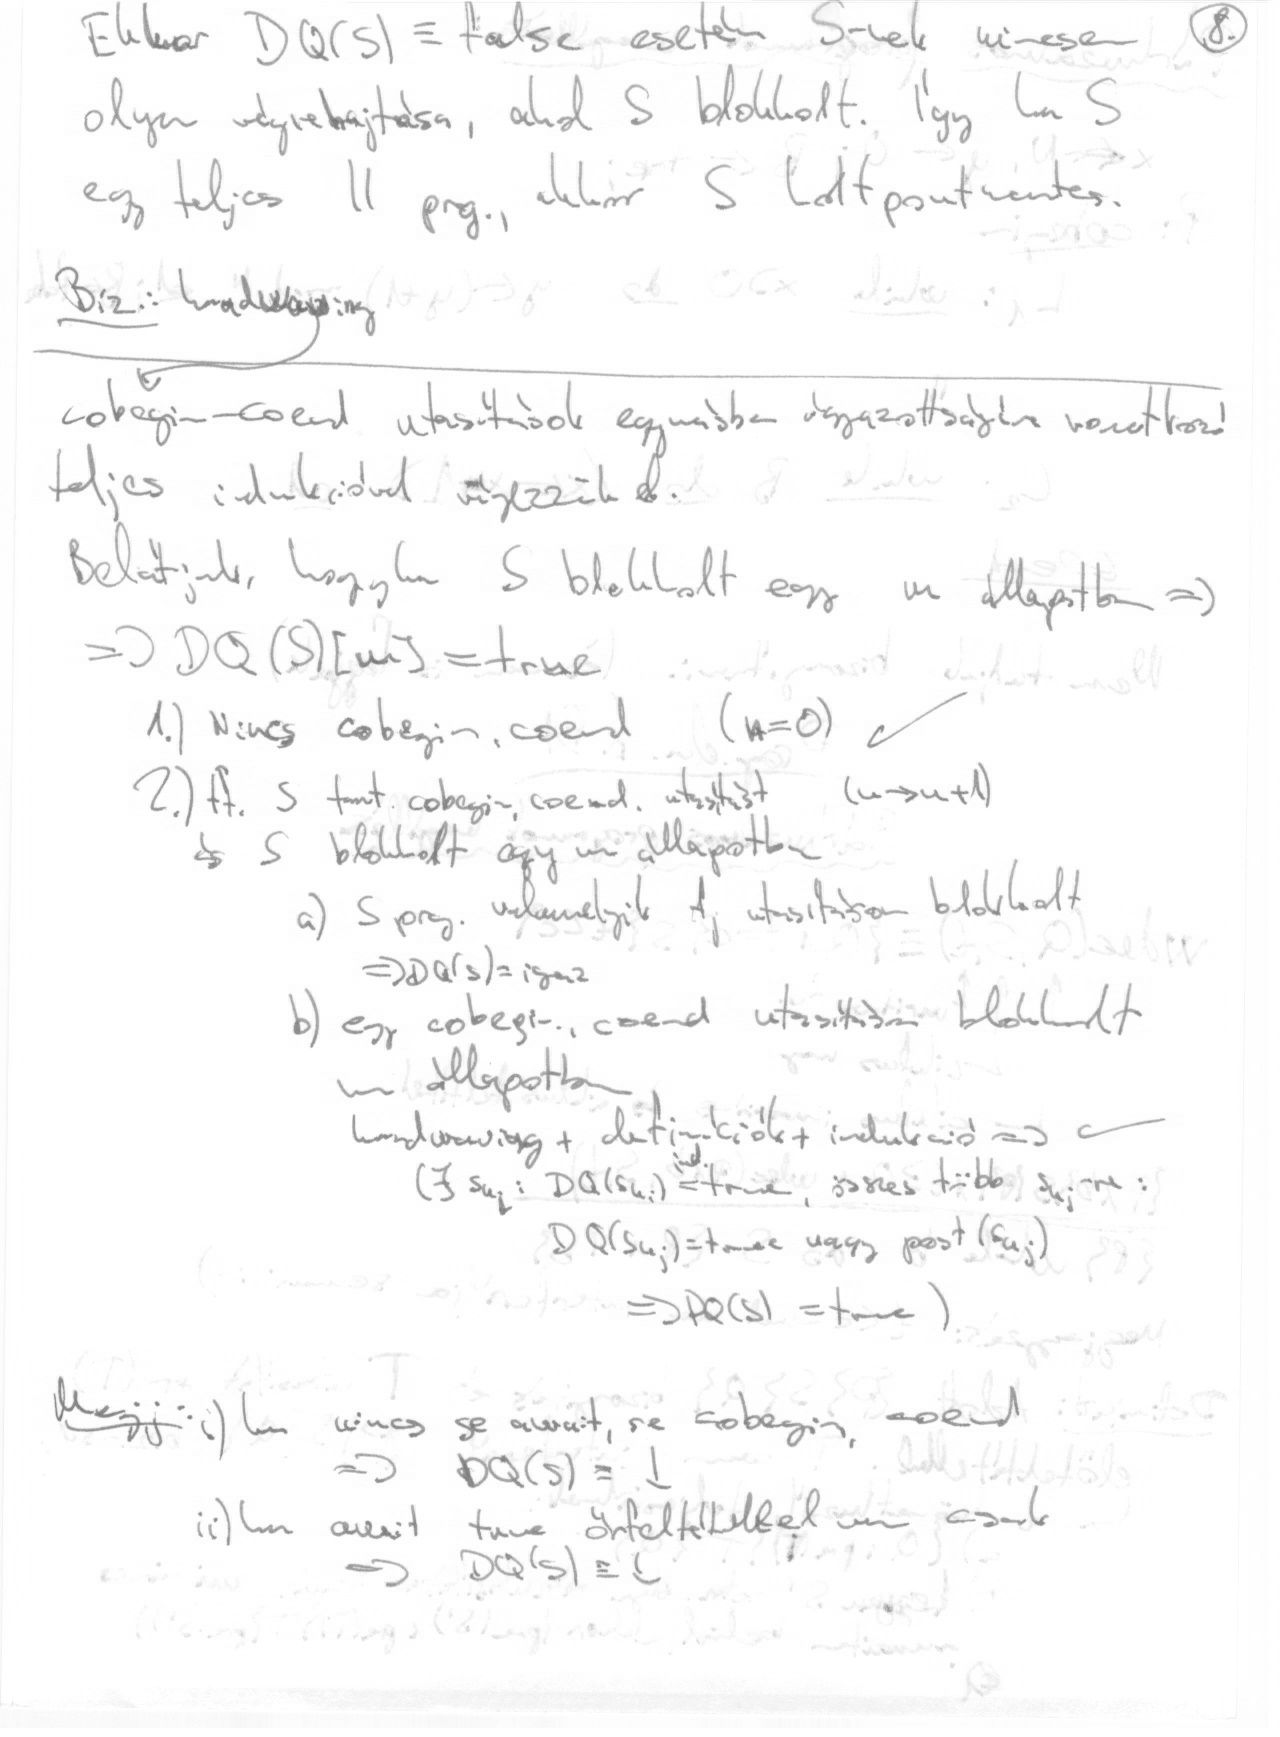 Ekkor DQ(S) ≡ false esetén S-nek nincsen 8.
olyan végrehajtása, ahol S blokkolt. Így ha S
egy teljes || prg., akkor S holtpontmentes.
Biz.: handwaving
cobegin-coend utasítások egymásba ágyazottságára vonatkozó
teljes indukcióval végezzük el.
Belátjuk, hogy ha S blokkolt egy m állapotban =>
=> DQ(S)[m] = true
1.) Nincs cobegin, coend (n=0) ✓
2.) Tf. S tart. cobegin, coend. utasítást (n→n+1)
és S blokkolt egy m állapotban
a) S prg. valamelyik Aj utasításon blokkolt
=> DQ(S) = igaz
b) egy cobegin, coend utasításon blokkolt
m állapotban
handwaving + definíciók + indukció => ✓
(∃ Ski : DQ(Ski) = true, összes többi Skj-re :
ind.
DQ(Skj) = true vagy post(Skj)
=> DQ(S) = true )
Megj.: i) ha nincs se await, se cobegin, coend
=> DQ(S) ≡ ↓
ii) ha await true őrfeltétellel van csak
=> DQ(S) ≡ ↓